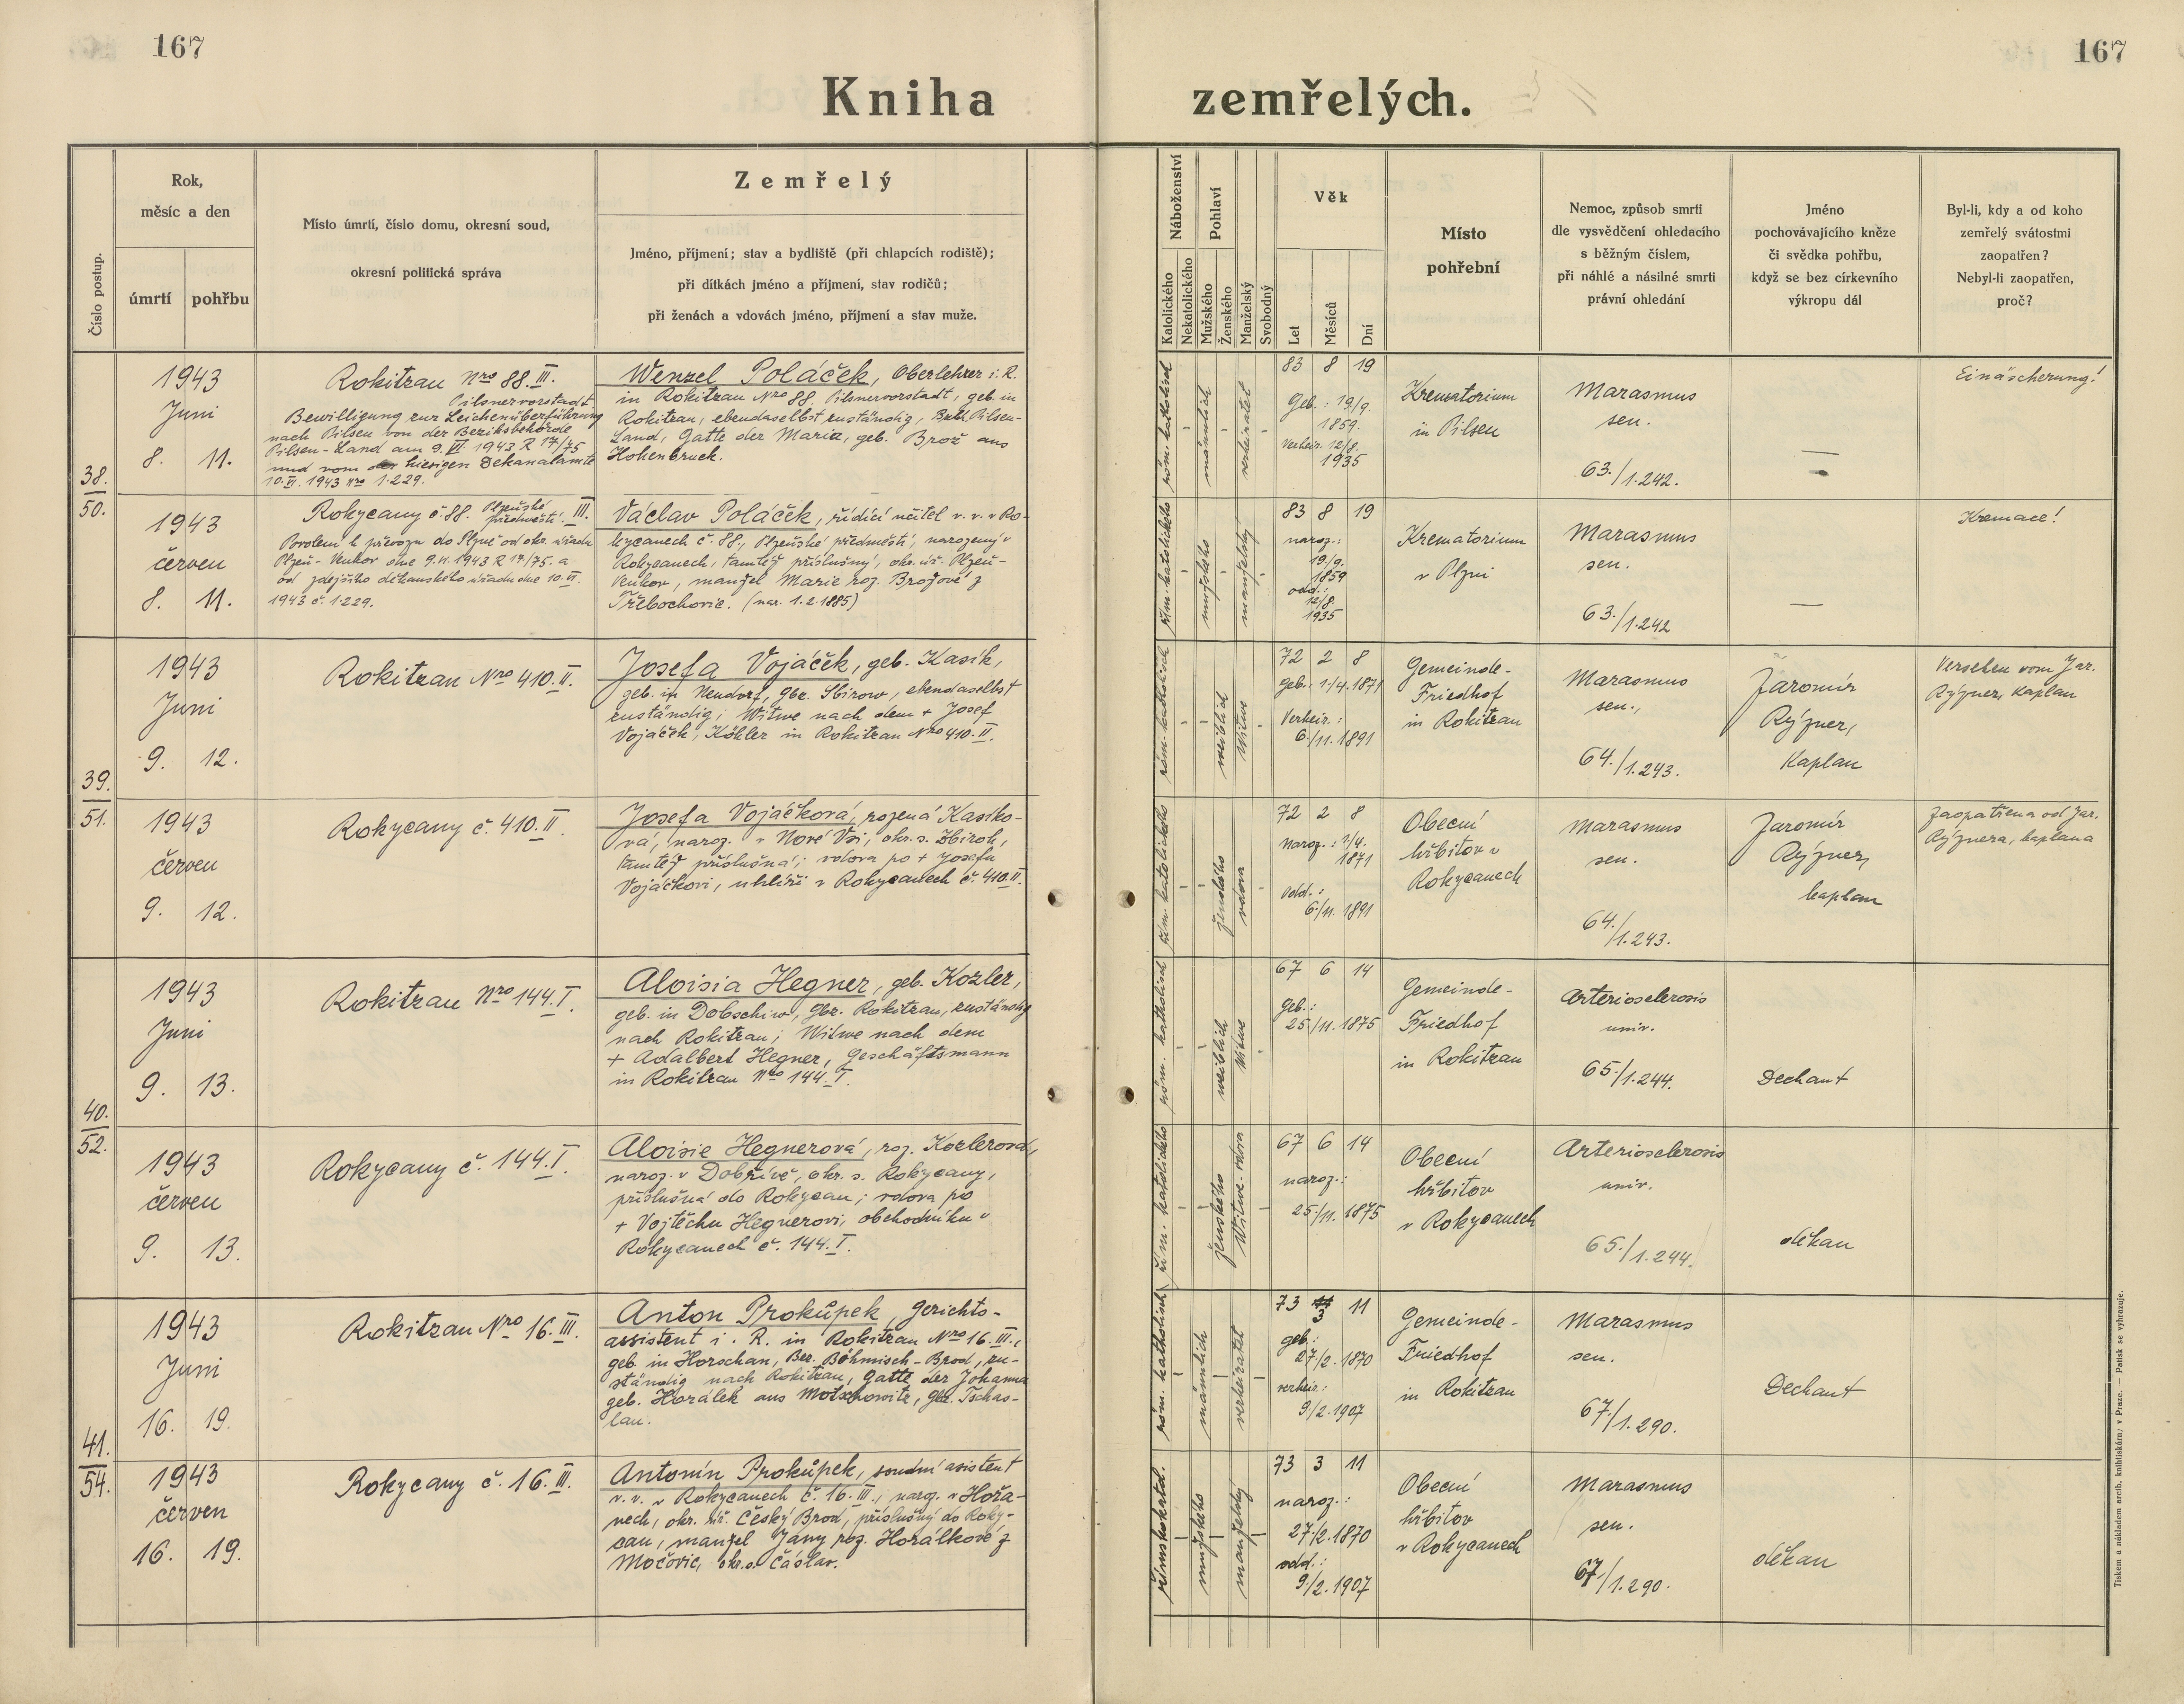 167
167
Kniha zemřelých.
Číslo postup.
Rok,
měsíc a den
úmrtí
pohřbu
Místo úmrtí, číslo domu, okresní soud,
okresní politická správa
Zemřelý
Jméno, příjmení; stav a bydliště (při chlapcích rodiště);
při dítkách jméno a příjmení, stav rodičů;
při ženách a vdovách jméno, příjmení a stav muže.
Náboženství
Katolického
Nekatolického
Pohlaví
Mužského
Ženského
Manželský
Svobodný
Věk
Let
Měsíců
Dní
Místo
pohřební
Nemoc, způsob smrti
dle vysvědčení ohledacího
s běžným číslem,
při náhlé a násilné smrti
právní ohledání
Jméno
pochovávajícího kněze
či svědka pohřbu,
když se bez církevního
výkropu dál
Byl-li, kdy a od koho
zemřelý svátostmi
zaopatřen?
Nebyl-li zaopatřen,
proč?
38.
50.
1943
Juni
8. 11.
Rokitzan Nro 88. III.
Pilsnervorstadt
Bewilligung zur Leichenüberführung
nach Pilsen von der Bezirksbehörde
Pilsen-Land am 9. VI. 1943 R 17/75
und vom hiesigen Dekanalamte
10. VI. 1943 Nro 1.229.
Wenzel Poláček, Oberlehrer i. R.
in Rokitzan Nro 88. Pilsnervorstadt, geb. in
Rokitzan, ebendaselbst zuständig, Bzbh. Pilsen-
Land, Gatte der Maria, geb. Brož aus
Hohenbruck.
röm. katholisch
-
männlich
-
verheiratet
-
83 8 19
Geb.: 19/9.
1859.
Verheir. 12/8.
1935
Krematorium
in Pilsen
Marasmus
sen.
63./1.242.
—
Einäscherung!
1943
červen
8. 11.
Rokycany č. 88. Plzeňské
předměstí. III.
Povolení k převozu do Plzně od okr. úřadu
Plzeň-Venkov dne 9. VI. 1943 R 17/75. a
od zdejšího děkanského úřadu dne 10. VI.
1943 č. 1.229.
Václav Poláček, řídící učitel v. v. v Ro-
kycanech č. 88., Plzeňské předměstí, narozený v
Rokycanech, tamtéž příslušný, okr. úř. Plzeň-
Venkov, manžel Marie roz. Brožové z
Třebechovic. (nar. 1.2.1885)
řím. katolického
-
mužského
-
manželský
-
83 8 19
naroz.:
19/9.
1859
odd.:
12/8.
1935
Krematorium
v Plzni
Marasmus
sen.
63./1.242
—
Kremace!
39.
51.
1943
Juni
9. 12.
Rokitzan Nro 410. II.
Josefa Vojáček, geb. Kasík,
geb. in Neudorf, Gbz. Sbirow, ebendaselbst
zuständig; Witwe nach dem + Josef
Vojáček, Köhler in Rokitzan Nro 410. II.
röm. katholisch
-
-
weiblich
Witwe
-
72 2 8
Geb.: 1./4. 1871
Verheir.:
6./11. 1891
Gemeinde-
Friedhof
in Rokitzan
Marasmus
sen.,
64./1.243.
Jaromír
Rýzner,
Kaplan
Versehen vom Jar.
Rýzner, Kaplan
1943
červen
9. 12.
Rokycany č. 410. II.
Josefa Vojáčková, rozená Kasíko-
vá, naroz. v Nové Vsi, okr. s. Zbiroh,
tamtéž příslušná; vdova po + Josefu
Vojáčkovi, uhlíři v Rokycanech č. 410. II.
řím. katolického
-
-
ženského
vdova
-
72 2 8
naroz.: 1/4.
1871
odd.:
6./11. 1891
Obecní
hřbitov v
Rokycanech
Marasmus
sen.
64./1.243.
Jaromír
Rýzner,
kaplan
Zaopatřena od Jar.
Rýznera, kaplana
40.
52.
1943
Juni
9. 13.
Rokitzan Nro 144. I.
Aloisia Hegner, geb. Kozler,
geb. in Dobschiw, Gbz. Rokitzan, zuständig
nach Rokitzan; Witwe nach dem
+ Adalbert Hegner, Geschäftsmann
in Rokitzan Nro 144. I.
röm. katholisch
-
-
weiblich
Witwe
-
67 6 14
Geb.:
25./11. 1875
Gemeinde-
Friedhof
in Rokitzan
Arteriosclerosis
univ.
65./1.244.
Dechant
1943
červen
9. 13.
Rokycany č. 144. I.
Aloisie Hegnerová, roz. Kozlerová,
naroz. v Dobřívě, okr. s. Rokycany,
příslušná do Rokycan; vdova po
+ Vojtěchu Hegnerovi, obchodníku v
Rokycanech č. 144. I.
řím. katolického
-
-
ženského
Witwe. vdova
-
67 6 14
naroz.:
25./11. 1875
Obecní
hřbitov
v Rokycanech
Arteriosclerosis
univ.
65./1.244.
děkan
41.
54.
1943
Juni
16. 19.
Rokitzan Nro 16. III.
Anton Prokůpek, Gerichts-
assistent i. R. in Rokitzan Nro 16. III.,
geb. in Horschan, Bez. Böhmisch-Brod, zu-
ständig nach Rokitzan, Gatte der Johanna
geb. Horálek aus Motschowitz, Gbz. Tschas-
lau.
röm. katholisch
-
männlich
-
verheiratet
-
73 11 11
3
geb.:
27/2. 1870
verheir.:
9/2. 1907
Gemeinde-
Friedhof
in Rokitzan
Marasmus
sen.
67./1.290.
Dechant
1943
červen
16. 19.
Rokycany č. 16. III.
Antonín Prokůpek, soudní asistent
v. v. v Rokycanech č. 16. III., naroz. v Hořa-
nech, okr. úř. Český Brod, příslušný do Roky-
can, manžel Jany roz. Horálkové z
Močovic, okr. s. Čáslav.
římskokatol.
-
mužského
-
manželský
-
73 3 11
naroz.:
27/2. 1870
odd.:
9/2. 1907
Obecní
hřbitov
v Rokycanech
Marasmus
sen.
67./1.290.
děkan
Tiskem a nákladem arcib. knihtiskárny v Praze. — Patisk se vyhrazuje.